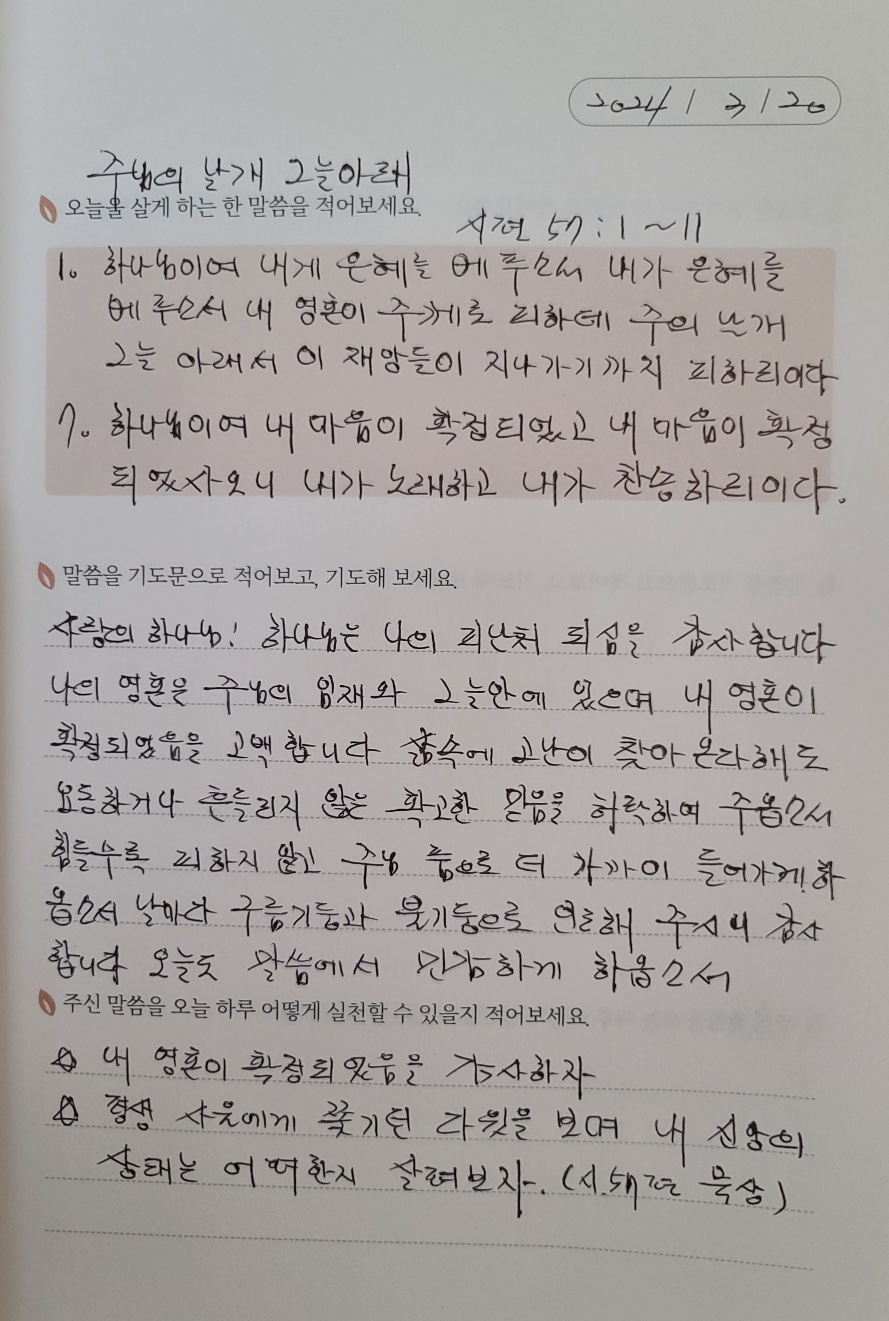 2024 / 3 / 20
주님의 날개 그늘아래
오늘을 살게 하는 한 말씀을 적어보세요.
시편 57 : 1 ~ 11
1. 하나님이여 내게 은혜를 베푸소서 내가 은혜를
베푸소서 내 영혼이 주께로 피하데 주의 날개
그늘 아래서 이 재앙들이 지나가기까지 피하리이다
7. 하나님이여 내 마음이 확정되었고 내 마음이 확정
되었사오니 내가 노래하고 내가 찬송하리이다.
말씀을 기도문으로 적어보고, 기도해 보세요.
사랑의 하나님! 하나님은 나의 피난처 되심을 감사합니다
나의 영혼은 주님의 임재와 그늘안에 있으며 내 영혼이
확정되었음을 고백합니다 삶속에 고난이 찾아온다해도
요동하거나 흔들리지 않는 확고한 믿음을 허락하여 주옵소서
힘들수록 피하지 않고 주님 품으로 더 가까이 들어가게 하
옵소서 날마다 구름기둥과 불기둥으로 인도해 주시니 감사
합니다 오늘도 말씀에서 민감하게 하옵소서
주신 말씀을 오늘 하루 어떻게 실천할 수 있을지 적어보세요.
내 영혼이 확정되었음을 감사하자
평생 사울에게 쫓기던 다윗을 보며 내 신앙의
상태는 어떠한지 살펴보자. (시.57편 묵상)